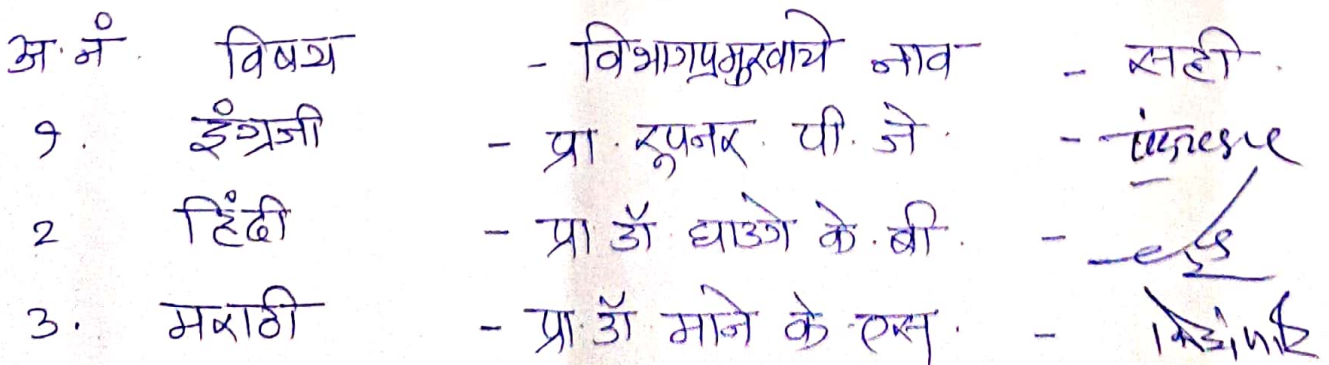 अ.नं. विषय - विभागप्रमुखाचे नाव - सही.
१. इंग्रजी - प्रा. रूपनर. पी. जे. -
2 हिंदी - प्रा डॉ घाडगे के. बी. -
3. मराठी - प्रा. डॉ माने के. एस. -